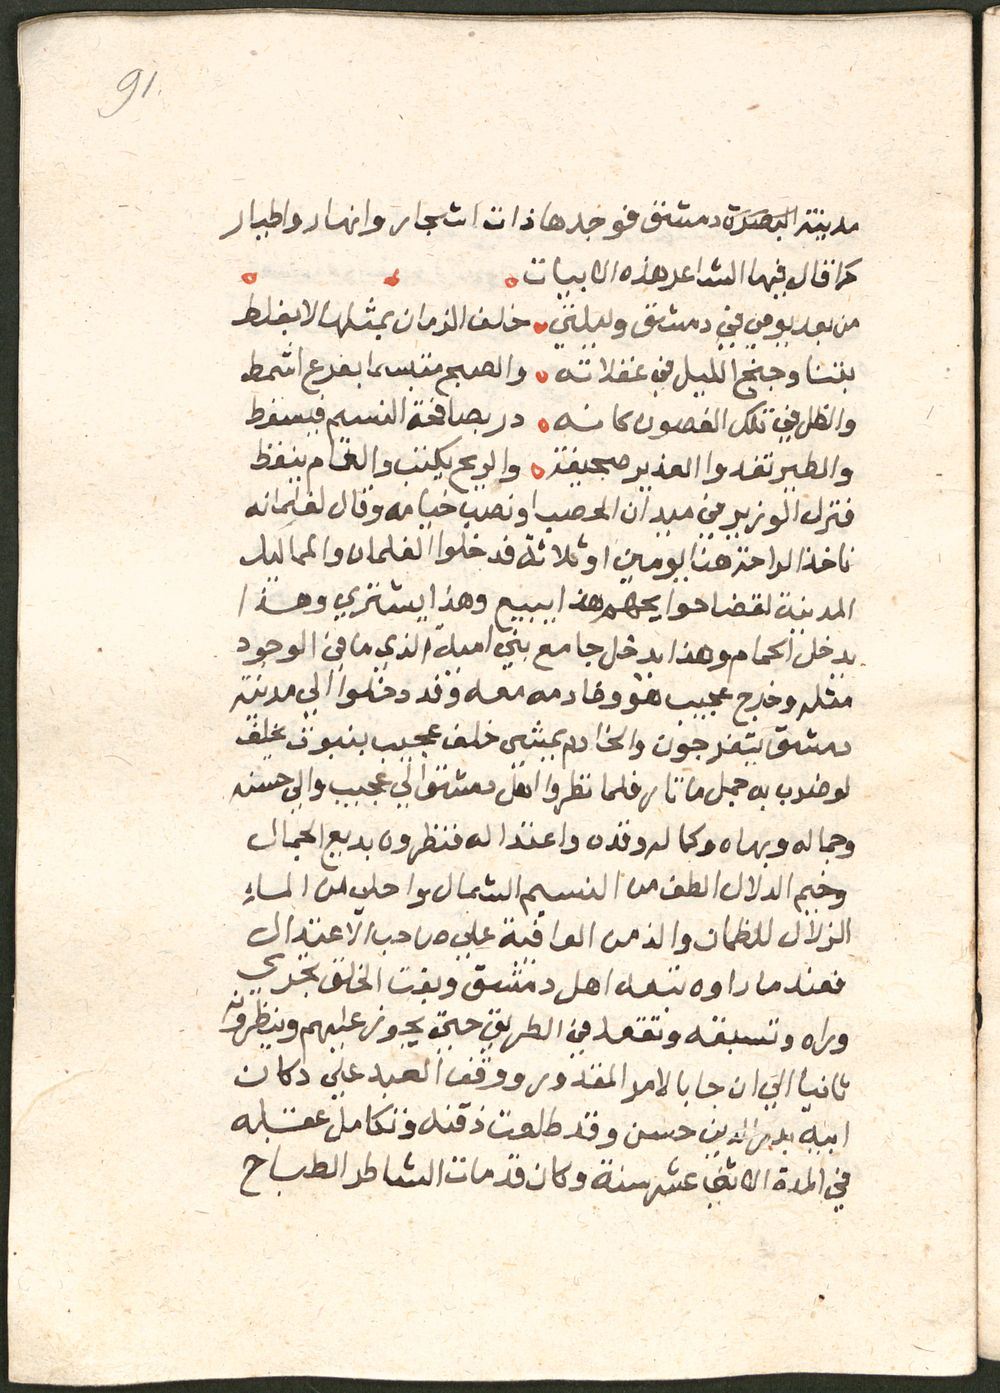 91.
مدينة البصرة دمشق فوجدها ذات اشجار وانهار واطيار
كما قال فيها الشاعر هذه الابيات
من بعد يومي في دمشق وليلتي خلف الزمان بمثلها لا يغلط
بتنا وجنح الليل في غفلاته والصبح متبسما بفرع اشمط
والظل في تلك الغصون كانه در يصافحة النسيم فيسقط
والطير تغدوا الغدير صحيفة والريح يكتب والغمام ينقط
فنزل الوزير في ميدان الحصبا ونصب خيامه وقال لغلمانه
ناخذ الراحة هنا يومين او ثلاثة فدخلوا الغلمان والمماليك
المدينة لقضا حوايجهم هذا يبيع وهذا يشتري وهذا
يدخل الحمام وهذا يدخل جامع بني امية الذي ما في الوجود
مثله وخرج عجيب هو وخادمه معه وقد دخلوا الي مدينة
دمشق يتفرجون والخادم يمشي خلف عجيب بنبوت
لو ضرب به جمل ما ثار فلما نظروا اهل دمشق الي عجيب والي حسنه
وجماله وبهاه وكماله وقده واعتداله فنظرون بديع الجمال
وخيم الدلال الطف من النسيم الشمال واحلي من الماء
الزلال للظمان والذ من العافية علي صاحب الاعتدال
فعند ما راوه تبعه اهل دمشق وبقت الخلق تجري
وراه وتسبقه وتقعد في الطريق حتي يجوز عليهم وينظرونه
ثانيا الي ان جا بالامر المقدور ووقف العبد علي دكان
ابيه بدر الدين حسن وقد طلعت ذقنه وتكامل عقله
في المدة الاثني عشر سنة وكان قد مات الشاطر الطباخ